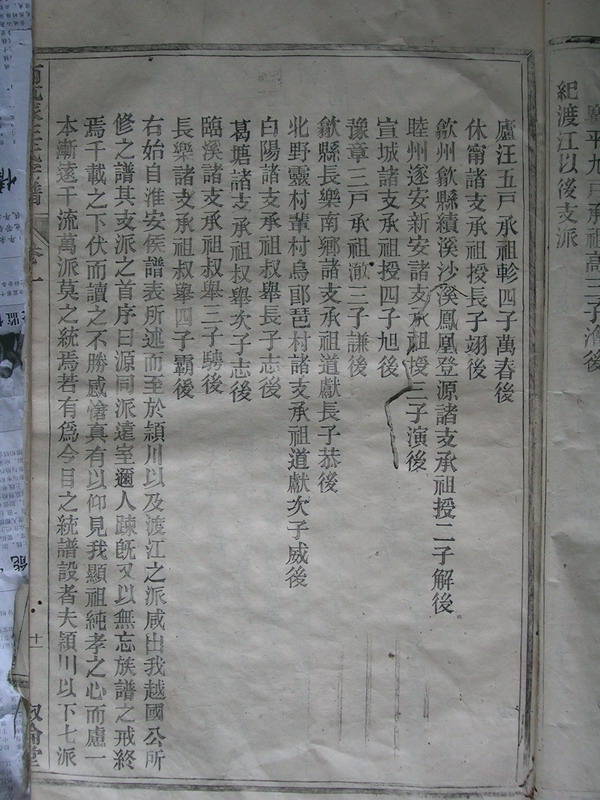 紀渡江以後支派
廬汪五戶承祖軫四子萬春後
休甯諸支承祖授長子翊後
歙州歙縣績溪沙溪鳳凰登源諸支承祖授二子解後
睦州遂安新安諸支承祖授三子演後
宣城諸支承祖授四子旭後
豫章三戶承祖澈三子謙後
歙縣長樂南鄉諸支承祖道獻長子恭後
北野靈村輩村烏郎琶村諸支承祖道獻次子威後
白陽諸支承祖叔舉長子志後
葛塘諸支承祖叔舉次子志後
臨溪諸支承祖叔舉三子騁後
長樂諸支承祖叔舉四子霸後
右始自淮安侯譜表所述而至於潁川以及渡江之派咸出我越國公所
修之譜其支派之首序曰源同派遠室邇人疎旣又以無忘族譜之戒終
焉千載之下伏而讀之不勝感愴真有以仰見我顯祖純孝之心而慮一
本漸遠千流萬派莫之統焉若有爲今日之統譜設者夫潁川以下七派
十一